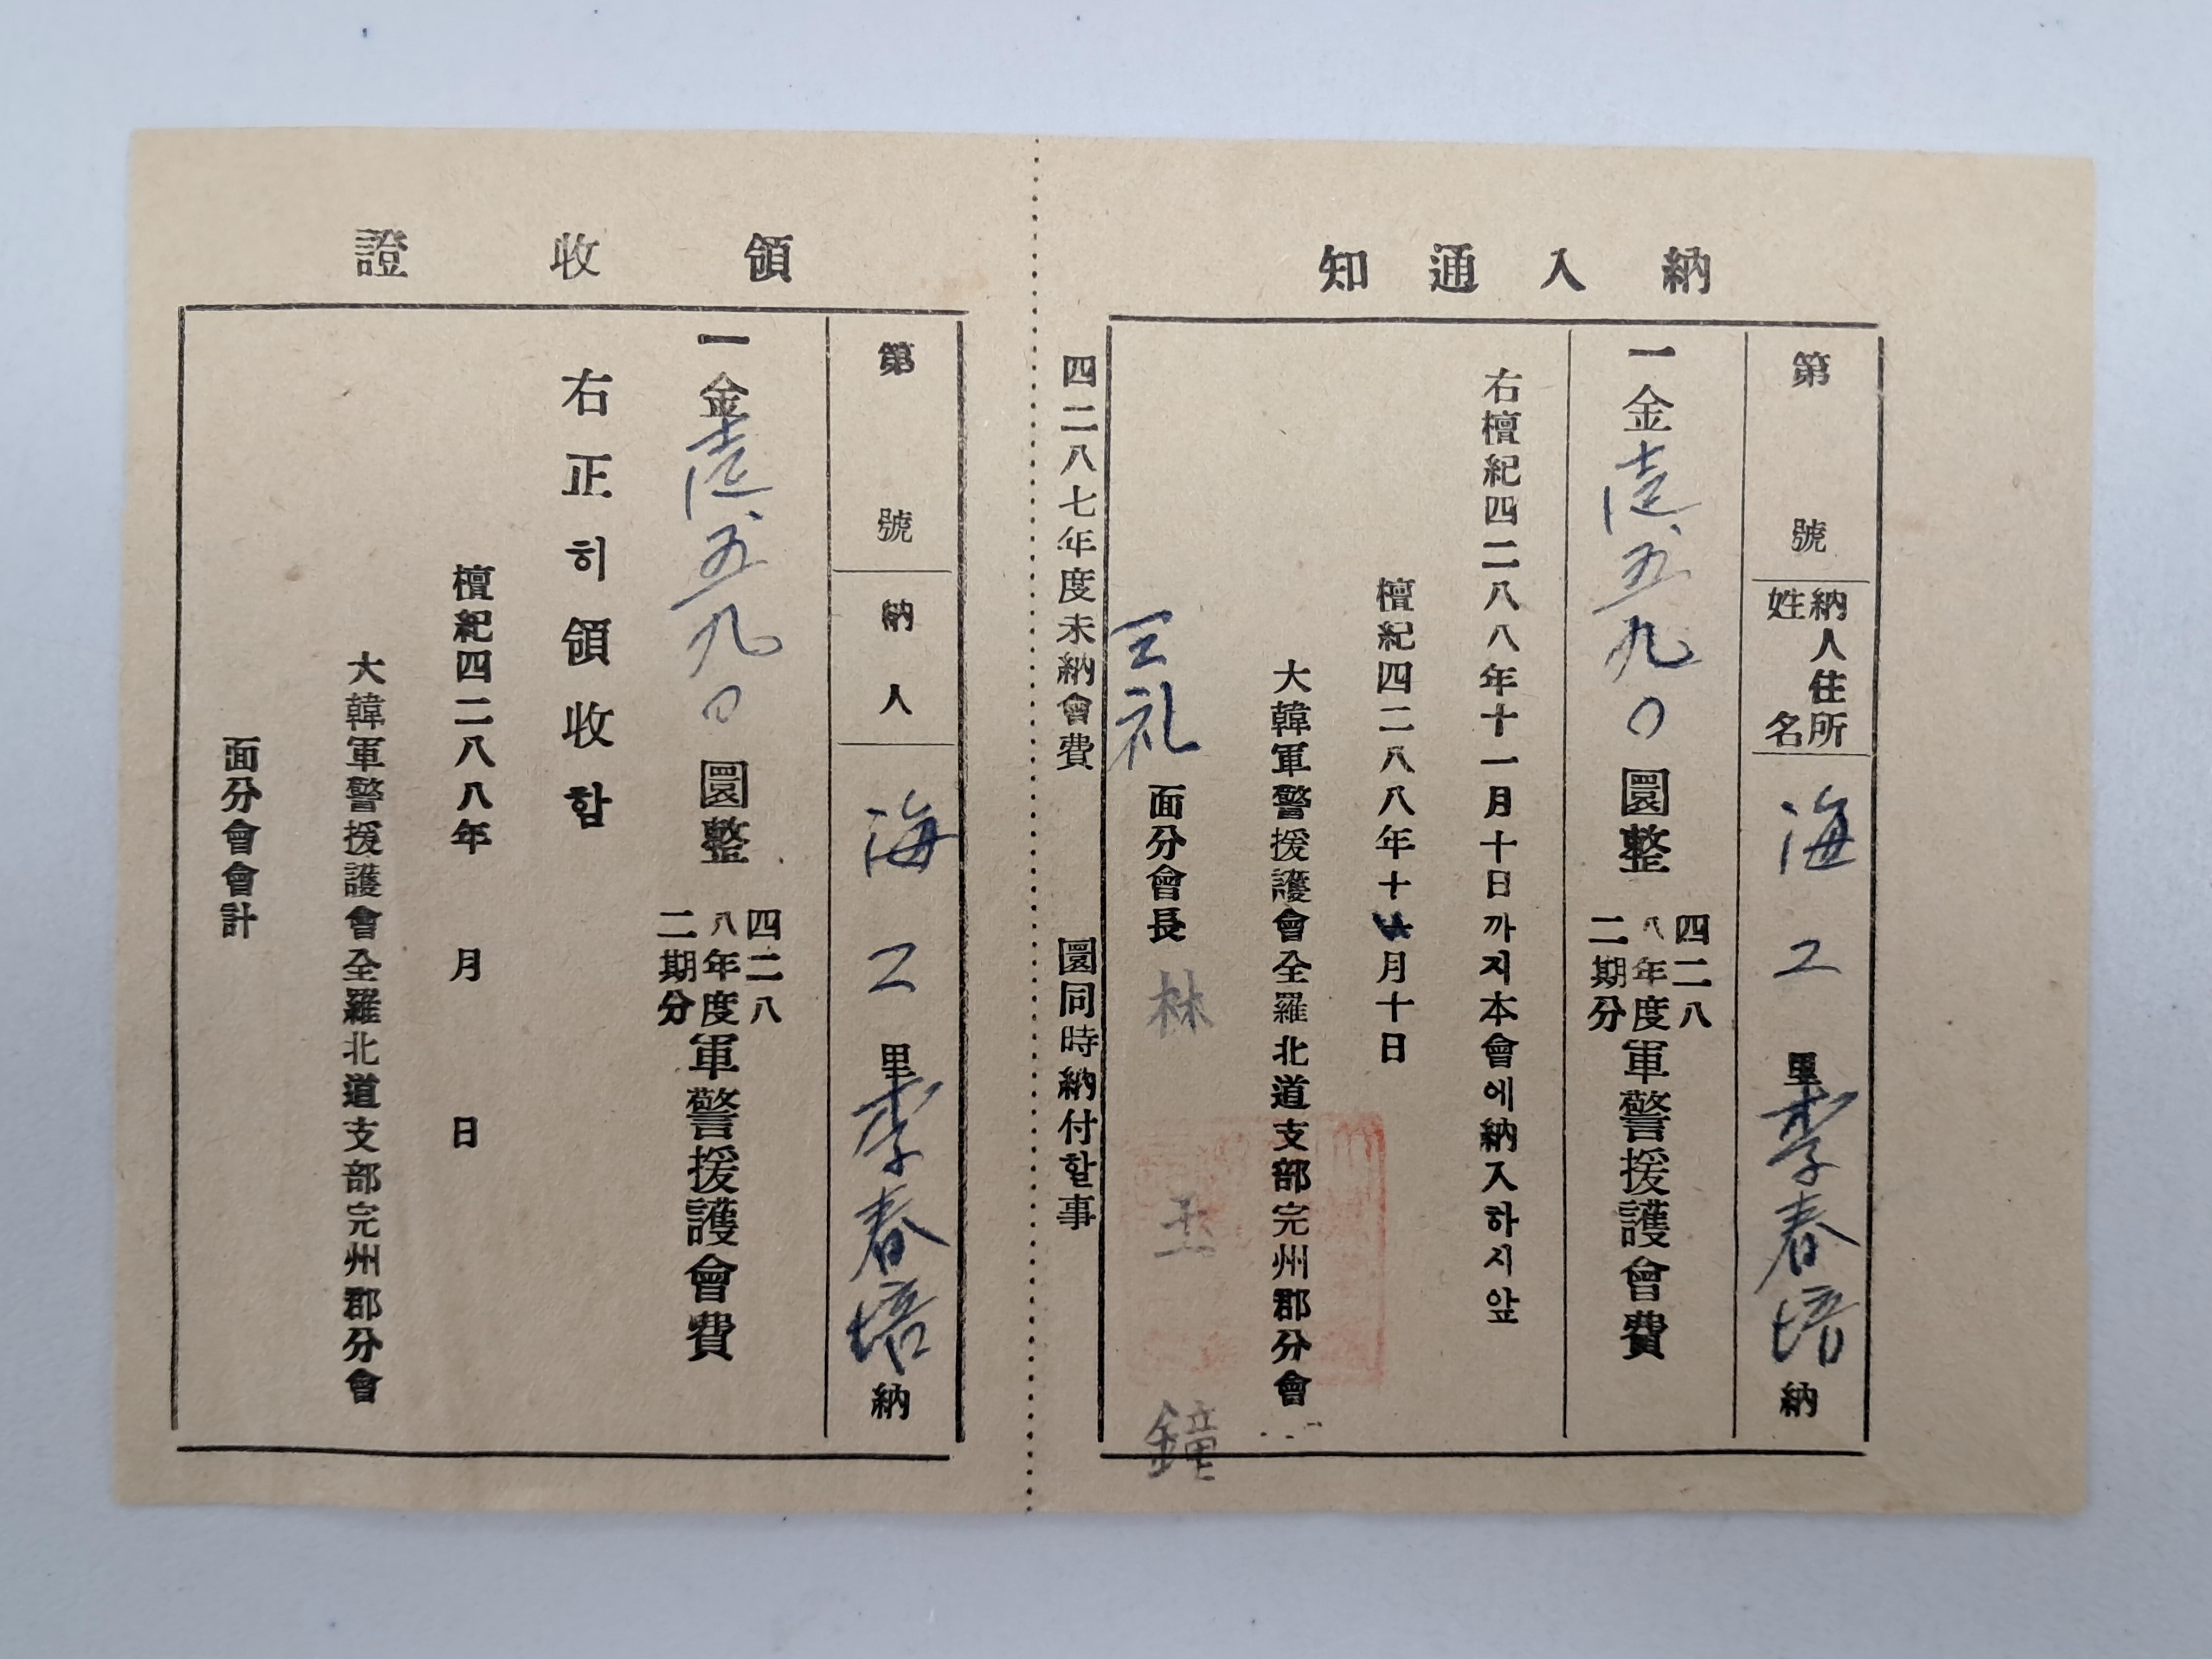 納入通知
第 號 納入住所 姓名 海 工 里 李春培 納
一金壹五九〇圜整 四二八八年度二期分 軍警援護會費
右檀紀四二八八年十一月十日까지本會에納入하시앞
檀紀四二八八年十 月十日
大韓軍警援護會全羅北道支部完州郡分會
面分會長 林 玉 鐘
四二八七年度未納會費 圜同時納付할事
領收證
第 號 納人 海 工 里 李春培 納
一金壹五九〇圜整 四二八八年度二期分 軍警援護會費
右正히領收함
檀紀四二八八年 月 日
大韓軍警援護會全羅北道支部完州郡分會
面分會會計